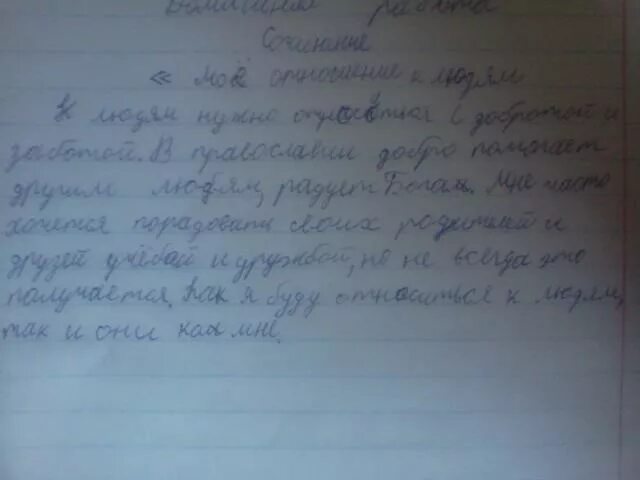 Домашняя работа
Сочинение
« Моё отношение к людям
К людям нужно относится с добротой и
заботой. В православии добро помогает
другим людям, радует Бога. Мне часто
хочется порадовать своих родителей и
друзей учёбой и дружбой, но не всегда это
получается. Как я буду относиться к людям,
так и они ко мне.